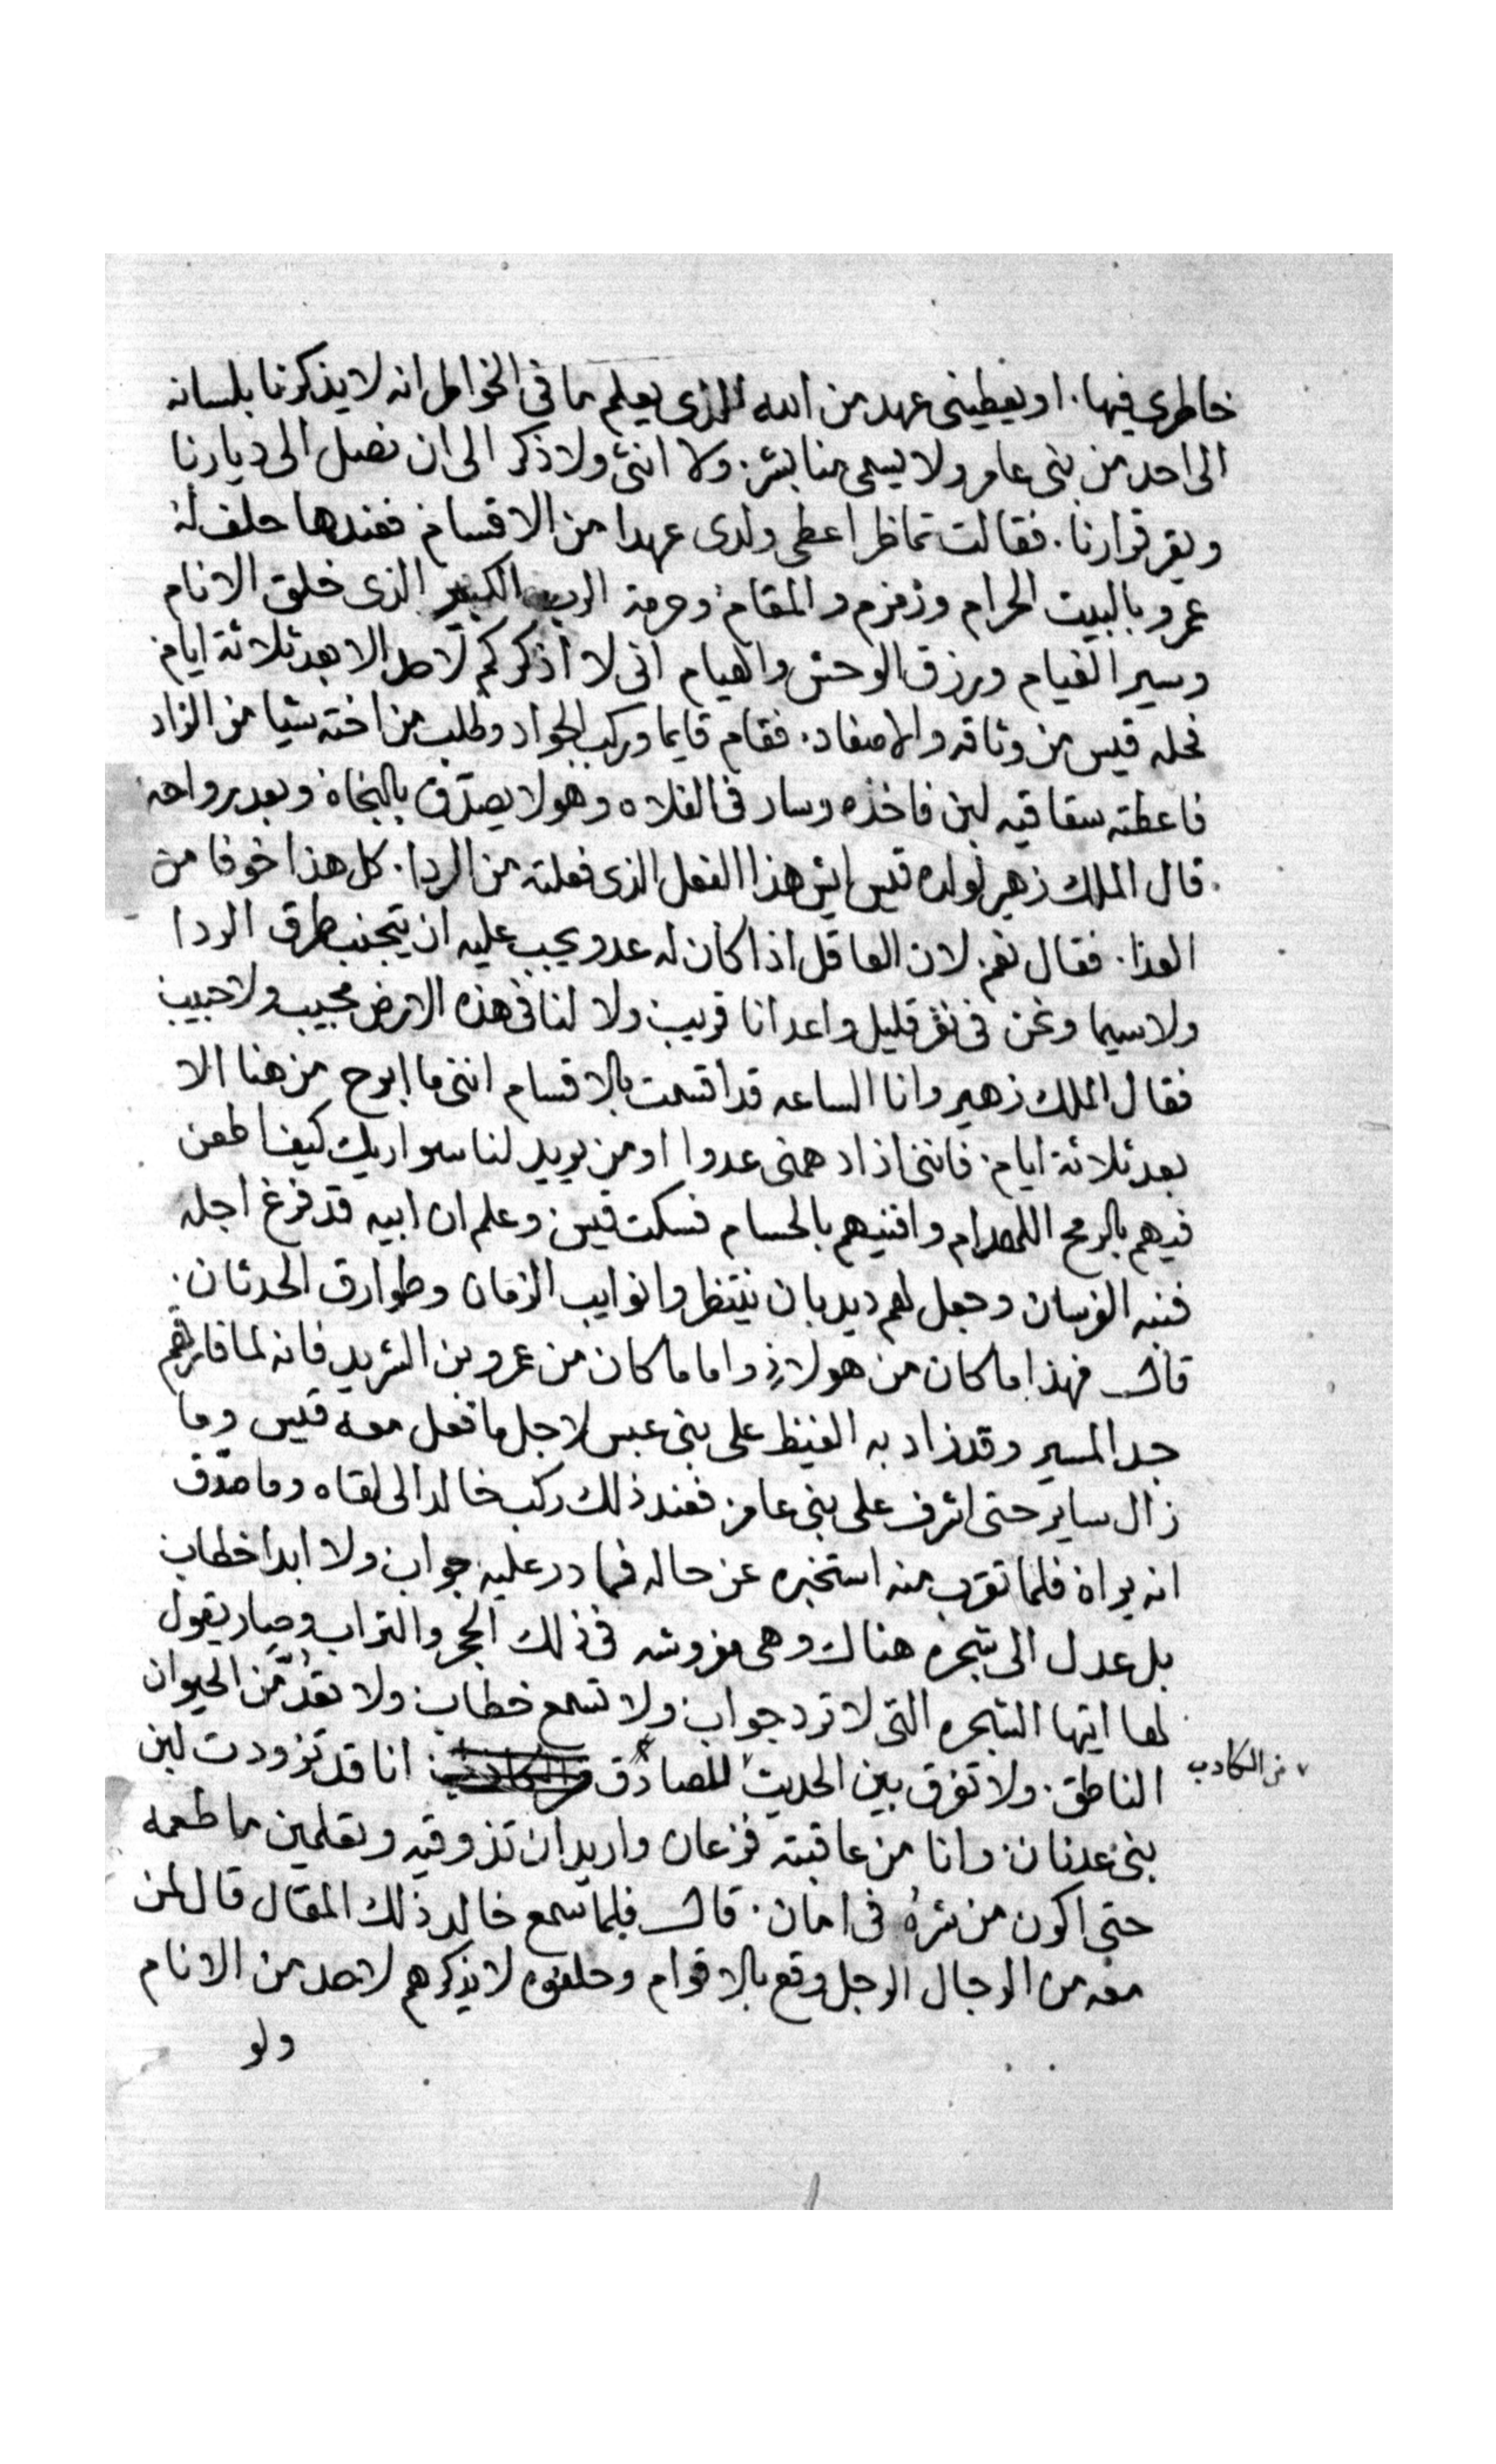 خاطرى فيها. او يعطينى عهد من الله الذى يعلم بما فى الخواطر انه لا يذكرنا بلسانه
الى احد من بنى عامر ولا يسمى منا بشر. ولا انثى ولا ذكر الى ان نصل الى ديارنا
ويقر قرارنا. فقالت تماظر اعطى ولدى عهدا من الاقسام فعندها حلف له
عمرو بالبيت الحرام وزمزم والمقام وحرمة الرب الكبير الذى خلق الانام
وسير الغيام ورزق الوحش والهيام انى لا اذكركم لاحد الا بعد ثلاثة ايام
فحله قيس من وثاقه والاصفاد. فقام قايما وركب الجواد وطلب من اخته شيا من الزاد
فاعطته سقا فيه لبن فاخذه وسار فى الفلاه وهو لا يصدق بالنجاة وبعد رواحه
قال الملك زهير لولده قيس ايش هذا الفعل الذى فعلته من الردا. كل هذا خوفا من
العدا. فقال نعم. لان العاقل اذا كان له عدو يجب عليه ان يتجنب طرق الردا
ولا سيما ونحن فى نفر قليل واعدانا قريب ولا لنا فى هذه الارض مجيب ولا حبيب
فقال الملك زهير وانا الساعه قد اقسمت بالاقسام اننى ما ابرح من هنا الا
بعد ثلاثة ايام. فاننى اذا دهمنى عدوا او من يريد لنا سو اريك كيف اطعن
فيهم بالرمح اللهدام وافنيهم بالحسام فسكت قيس وعلم ان ابيه قد فرغ اجله
فنبه الفرسان وجعل لهم ديدبان ينتظروا نوايب الزمان وطوارق الحدثان.
قال فهذا ما كان من هولاء واما ما كان من عمرو بن الشريد فانه لما فارقهم
جد المسير وقد زاد به الغيظ على بنى عبس لاجل ما فعل معه قيس وما
زال ساير حتى اشرف على بنى عامر فعند ذلك ركب خالد الى لقاه وما صدّق
انه يراه فلما تقرب منه استخبره عن حاله فما رد عليه جواب ولا ابدا خطاب
بل عدل الى شجره هناك وهى مغروشه فى ذلك الحجر والتراب وصار يقول
لها ايتها الشجره التى لا ترد جواب ولا تسمع خطاب ولا تعدّ من الحيوان
الناطق. ولا تفرق بين الحديث الصادق من الكادب انا قد تزودت لبن
بنى عدنان وانا من عاقبته فزعان واريد ان تذوقيه وتعلمين ما طعمه
حتى اكون من شره فى امان. قال فلما سمع خالد ذلك المقال قال لمن
معه من الرجال الرجل وقع بالاقوام وحلفوه لا يذكرهم لاحد من الانام
ولو